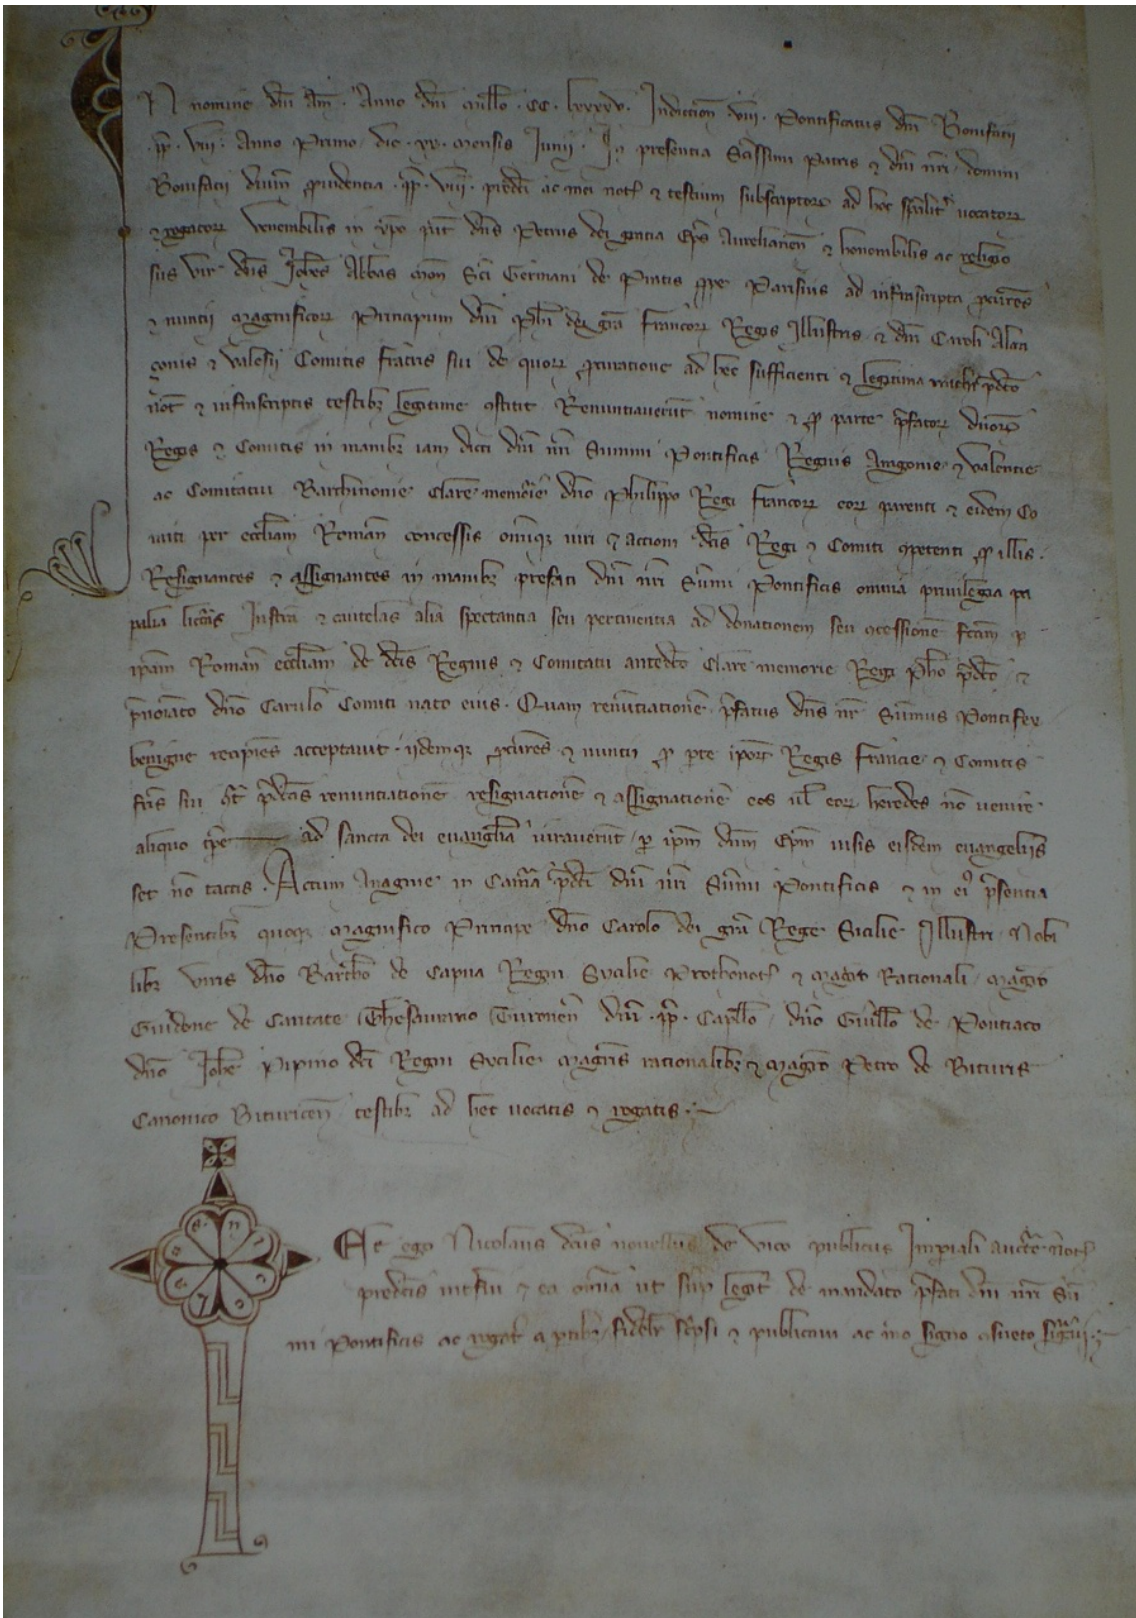 IN nomine dni Am. Anno dni millo. CC. lxxxxv. Indiction. viii. Pontificatus dni Bonifatii
pp. viii. Anno Primo, die. xx. mensis Junii. In presentia Sctissimi Patris & dni nri, domini
Bonifacii divina providentia. pp. viii. predicti ac mei not & testium subscriptor ad hec spialit vocator
& rogator Venerabilis in xpo pat dns Petrus dei gratia Eps Aurelianen & honorabilis ac religio
sus vir dns Johes Abbas mon Sci Germani de Pratis prope Parisius ad infrascripta procures
& nuntii magnificor Principum dni Phi dei gra Francor Regis Illustris & dni Caroli Alan
conis & Valesii Comitis fratris sui de quor procuratione ad hec sufficienti & legitima michi pdco
not & infrascriptis testibz legitime constitit Renuntiaverut nomine & pro parte pfator duor
Regis & Comitis in manibz iam dicti dni nri Summi Pontificis Regnis Aragonie & Valentie
ac Comitatui Barchinonie Clare memorie dno Philippo Regi francor eor parenti & eidem Co
miti per eccliam Roman concessis omniqz iuri & actioni dcis Regi & Comiti competenti pro illis.
Resignantes & assignantes in manibz prefati dni nri Summi Pontificis omnia privilegia pa
palia licteras Instra & cautelas alia spectantia seu pertinentia ad donationem seu concessione fcam p
ipam Roman eccliam de dcis Regnis & Comitatu antedco Clare memorie Regi Pho pdco, &
pnoiato dno Carulo Comiti nato eius. Quam renuntiatione, pfatus dns nr Summus Pontifex
benigne recipies acceptavit. iidemqz procures & nuntii pro pte ipor Regis Francie & Comitis
fris sui contra pdcas renuntiatione resignatione & assignatione eos vl eor heredes no venire
aliquo tpe ad sancta dei evangelia iuraverut, per ipm dnm Epm visis eisdem evangeliis
set no tactis. Actum Anagnie in Cama pdci dni nri Summi Pontificis & in ei psentia
Presentibz quoqz magnifico Principe dno Carolo dei gra Rege Sicilie Illustri, Nobi
libz viris dno Bartho de Capua Regni Sycilie Prothonot & magro Rationali, magro
Guidone de Caritate Thesaurario Turonen dni. pp. Capllo, dno Guillo de Pontiaco
dno Johe Pipino dci Regni Sycilie magris rationalibz & magro Petro de Bituris
Canonico Bituricen testibz ad hec vocatis & rogatis.
Et ego Nicolaus dcus novellus de Vico publicus Imperiali auctte not
predcis interfui & ea omnia ut sup legit de mandato pfati dni nri Su
mi Pontificis ac rogat a ptibz, fideliter scripsi & publicavi ac meo signo consueto signavi.